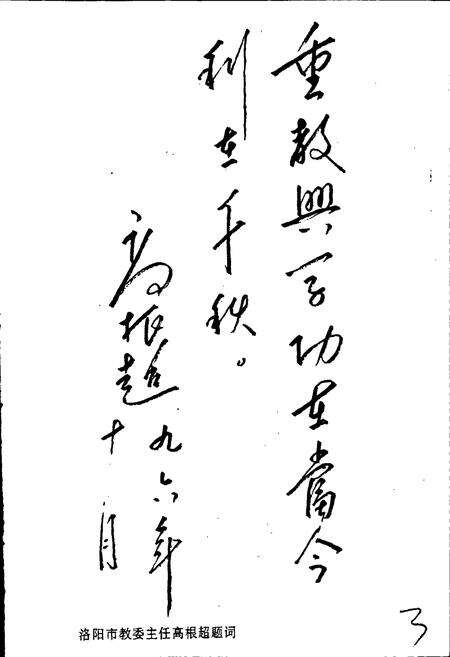 重教興学功在當今
利在千秋。
高根超
九六年
十月
洛阳市教委主任高根超题词
3